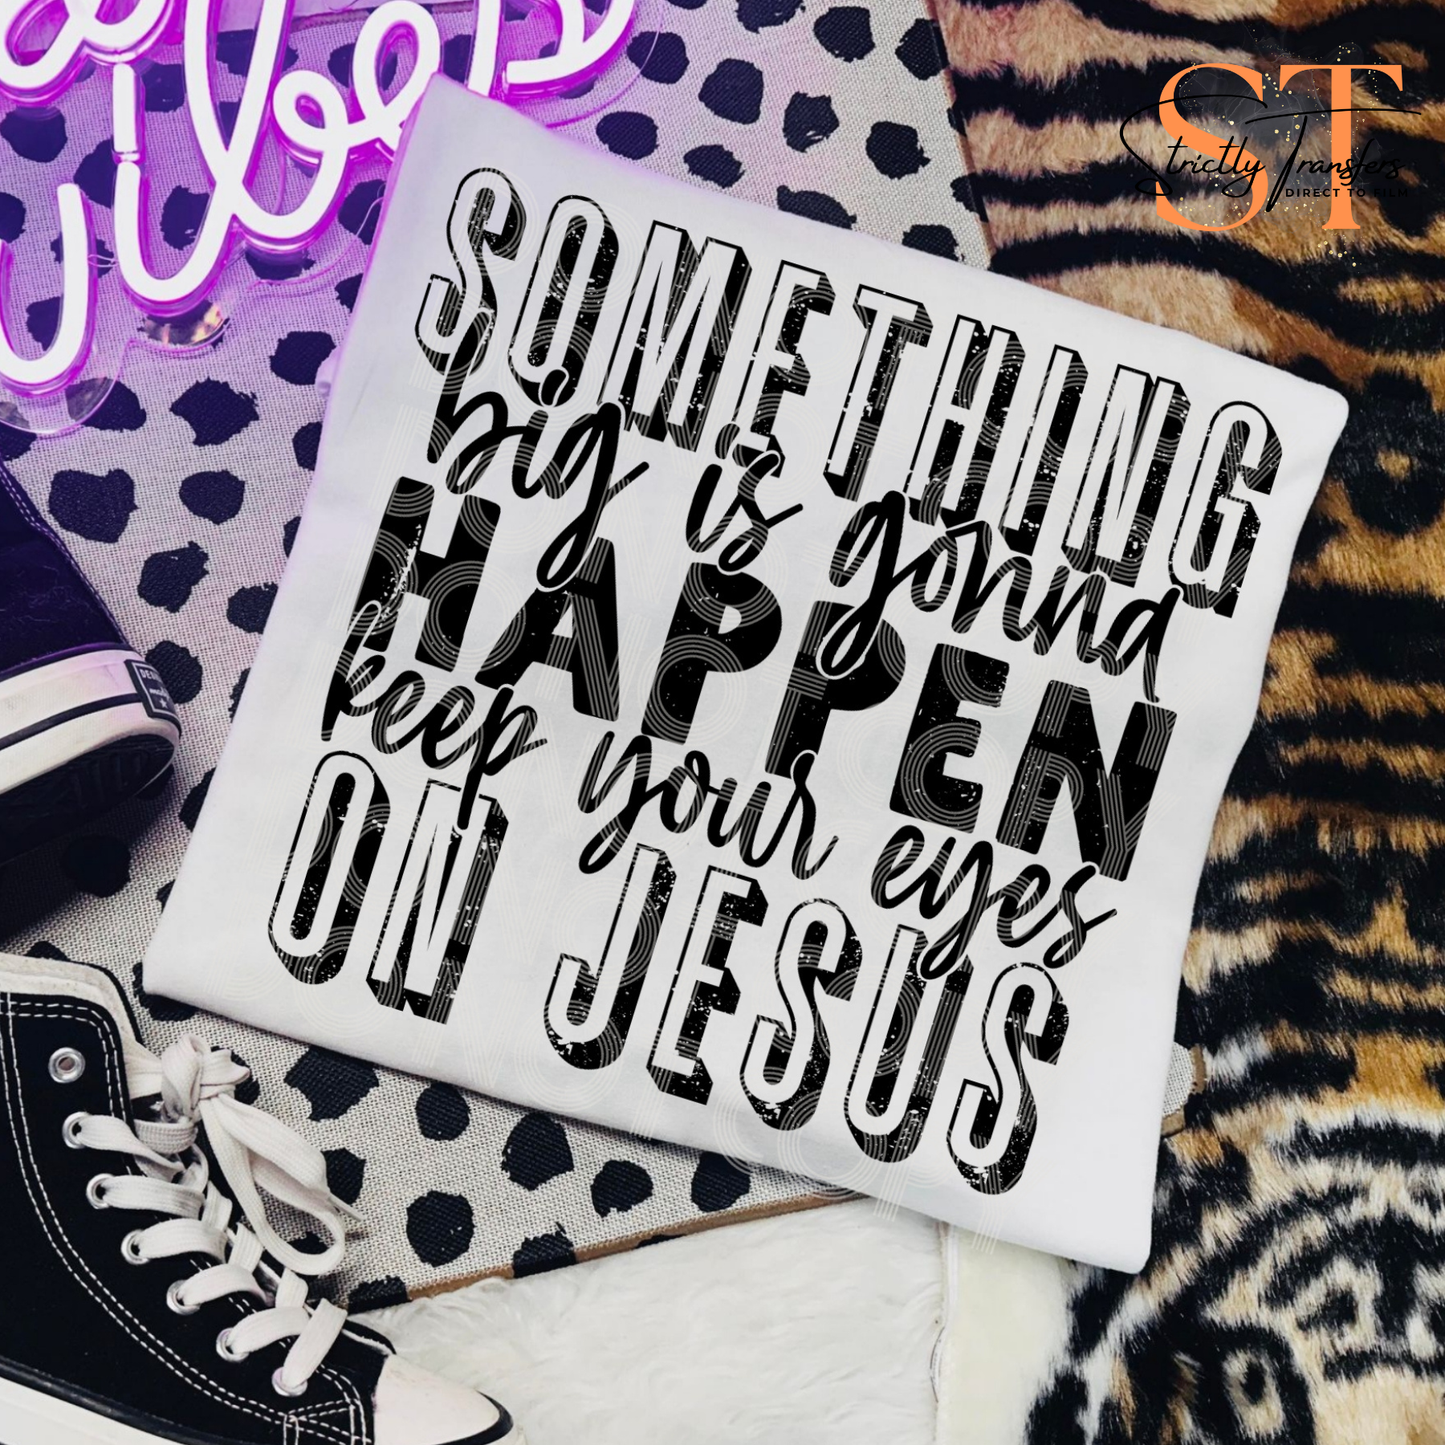 vibes
ST
Strictly Transfers
DIRECT TO FILM
SOMETHING
big is gonna
HAPPEN
keep your eyes
ON JESUS